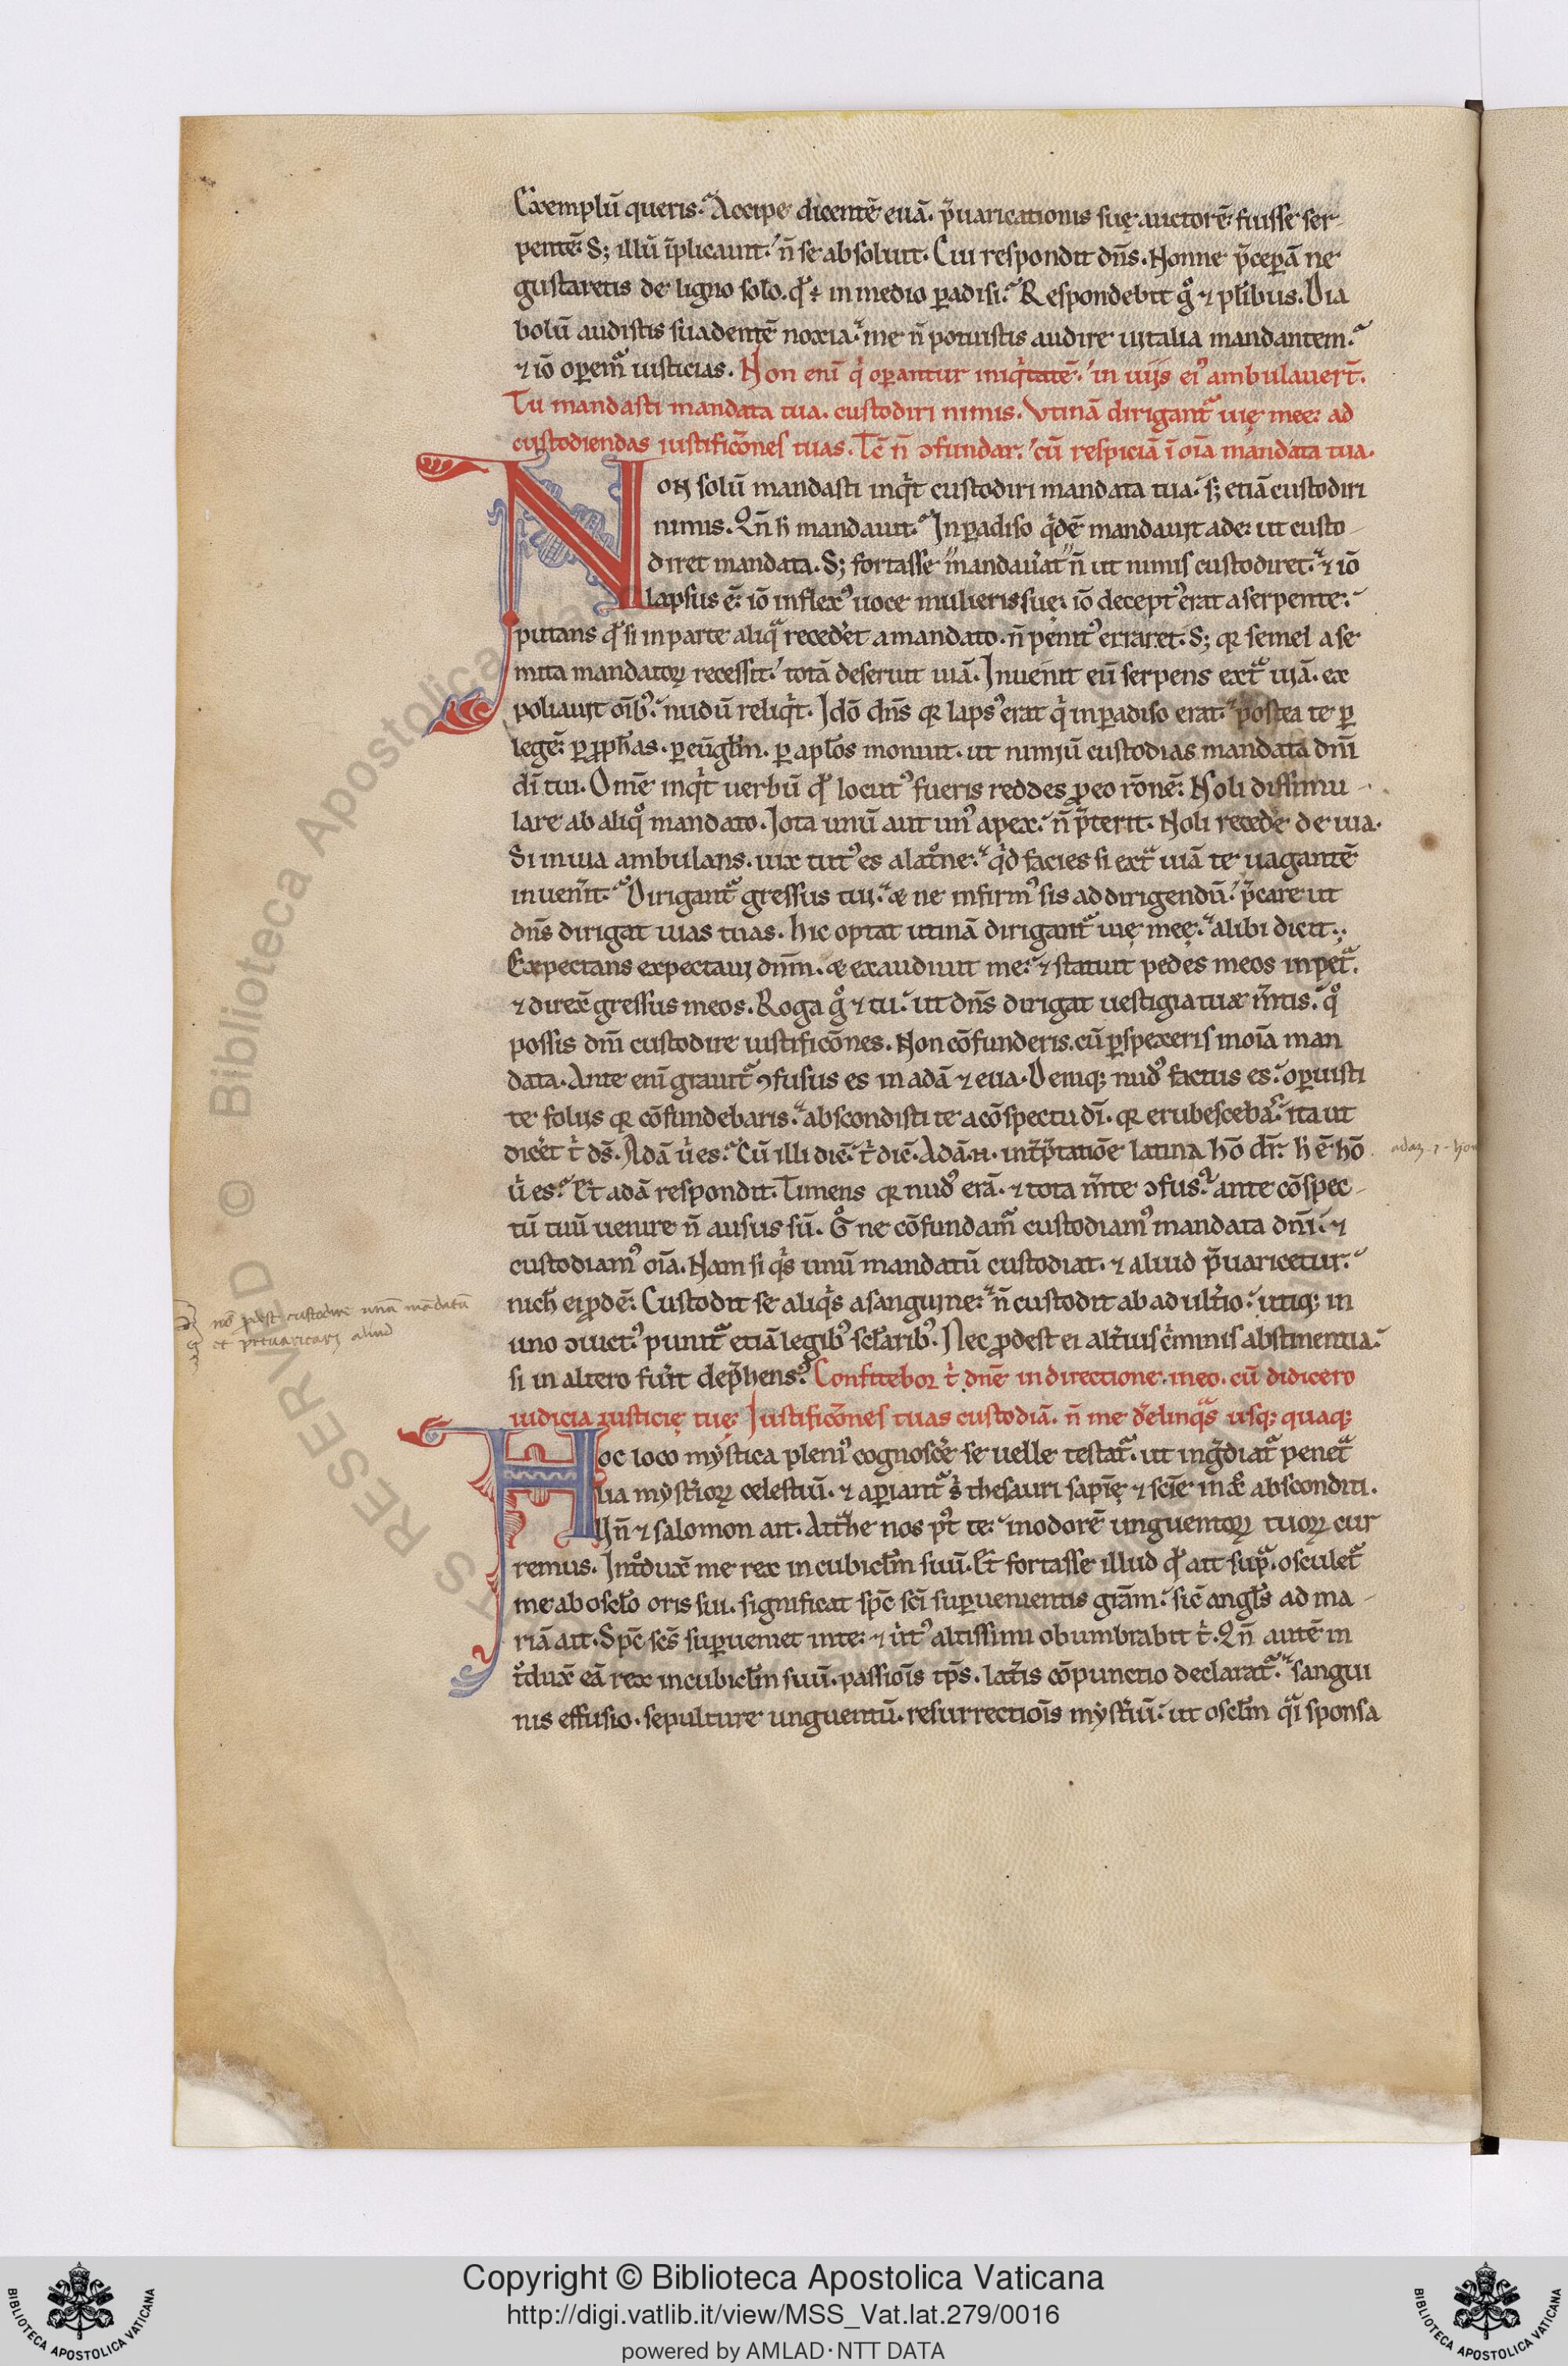 Exemplū queris. Accipe dicentē euā. p̄uaricationis suę auctorē fuisse ser-
pentē. S; illū īplicauit. n̄ se absoluit. Cui respondit dn̄s. Nonne p̄ceperā ne
gustaretis de ligno solo. qd̄ ÷ in medio ꝑadisi. Respondebit gͦ ⁊ plibus. Dia
bolū audistis suadentē noxia. me n̄ potuistis audire uitalia mandantem.
⁊ iō oꝑemͣ iusticias. Non enī qͥ oꝑantur iniqͥtatē. in uijs eiꝰ ambulauert̄.
Tu mandasti mandata tua. custodiri nimis. Vtinā dirigantͣ uię mee. ad
custodiendas iustificōnes tuas. Tc̄ n̄ ɔfundar. cū respiciā ī oīa mandata tua.
NON solū mandasti inqͥt custodiri mandata tua. s; etiā custodiri
nimis. Qn̄ h̄ mandauit. In ꝑadiso qͥdē mandauit ade. ut custo-
diret mandata. S; fortasse mandau̓at n̄ ut nimis custodiret. ⁊ iō
lapsus ē. iō inflexꝰ uoce mulieris suę. iō deceptꝰ erat a serpente.
putans qd̄ si in parte aliqͣ recedēt a mandato. n̄ penitꝰ erraret. S; qꝛ semel a se
mita mandatoꝝ recessit. totā deseruit uiā. Inuenit eū serpens extͣ uiā. ex
poliauit oībꝰ. nudū reliqͥt. Idō dn̄s qꝛ lapsꝰ erat qͥ in ꝑadiso erat. postea te ꝑ
legē. ꝑ ꝓph̄as. ꝑ eu̅gl̄m. ꝑ apl̄os monuit. ut nimiū custodias mandata dn̄i
dī tui. Omē inqͥt uerbū qd̄ locutꝰ fueris reddes ꝓ eo rōnē. Noli dissimu-
lare ab aliqͦ mandato. Iota unū aut unꝰ apex. n̄ p̄terit. Noli recedē de uia.
Si in uia ambulans. uix tutꝰ es a latͦne. qͥd facies si extͣ uiā te uagantē
inuen̓it. Dirigantͣ gressus tui. & ne infirmꝰ sis ad dirigendū. p̄care ut
dn̄s dirigat uias tuas. hic optat utinā dirigantͣ uię meę. alibi dicit.
Expectans expectaui dnm̄. & exaudiuit me. ⁊ statuit pedes meos in petͣ.
⁊ direx̄ gressus meos. Roga gͦ ⁊ tu. ut dn̄s dirigat uestigia tuæ m̄tis. qͦ
possis dn̄i custodire iustificōnes. Non cōfunderis. cū ꝑspexeris in oīa man
data. Ante enī grauitͣ ɔfusus es in adā ⁊ eua. Deniq; nudꝰ factus es. oꝑuisti
te folijs qꝛ cōfundebaris. abscondisti te a cōspectu dī. qꝛ erubescebas. ita ut
dic̓et tͥ ds̄. Adā u̓ es. Cū illi dic̄. tͥ dic̄. Adā .n. int̓p̄tatiōe latina hō dr̄. h̓ ē hō
u̓ es. Et adā respondit. Timens qꝛ nudꝰ erā. ⁊ tota m̄te ɔfusꝰ. ante cōspec-
tū tuū uenire n̄ ausus sū. Gͦ ne cōfundamͣ custodiamꝰ mandata dn̄i. ⁊
custodiamꝰ oīa. Nam si qͥs unū mandatū custodiat. ⁊ aliud p̄uaricetur.
nich̄ ei ꝓdē. Custodit se aliqͥs a sanguine. n̄ custodit ab adult̓io. utiq; in
uno ɔuictꝰ. punitͣ etiā legibꝰ scl̄aribꝰ. Nec ꝓdest ei alt̓ius cͥminis abstinentia.
si in altero fu̓it dep̄hensꝰ. Confitebor tͥ dn̄e in directione. meo. cū didicero
iudicia iusticię tuę. Iustificōnes tuas custodiā. n̄ me d̓elinqͣs usq; quaq;
Hoc loco mystica pleniꝰ cognosc̓e se uelle testatͣ. ut ingͣdiatͣ penetͣ
lia myst̓ioꝝ celestiū. ⁊ aꝑiantͣ sͥ thesauri sapīę ⁊ scīe in xp̄o absconditi.
Vn̄ ⁊ salomon ait. Att̓he nos pꝰt te. in odorē unguentoꝝ tuoꝝ cur
remus. Intͦdux̄ me rex in cubicl̄m suū. Et fortasse illud qd̄ ait supͣ. osculetͣ
me ab oscl̄o oris sui. significat spc̄ sc̄i suꝑuenientis grām. sic̄ angl̄s ad ma-
riā ait. Spc̄ sc̄s suꝑueniet in te. ⁊ u̓tꝰ altissimi obumbrabit tͥ. Qn̄ autē in
tͦdux̄ eā rex in cubicl̄m suū. passioīs tp̄s. lat̓is cōpunctio declaratͣ. sangui
nis effusio. sepulture unguentū. resurrectioīs myst̓iū. ut oscl̄m qͣi sponsa
nō pdest custodire unū mādatū
et preuaricarj aliud
adaz .i. hom
Copyright © Biblioteca Apostolica Vaticana
http://digi.vatlib.it/view/MSS_Vat.lat.279/0016
powered by AMLAD·NTT DATA
BIBLIOTECA APOSTOLICA VATICANA
BIBLIOTECA APOSTOLICA VATICANA